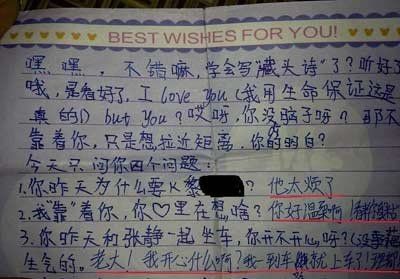 BEST WISHES FOR YOU!
嘿嘿,不错嘛,学会写"藏头诗"了?听好了
哦,是看好了,I love You(我用生命保证这是
真的) but You?哎呀,你没脑子呀?那不
靠着你,只是想拉近距离,你的明白?
今天只问你四个问题:
1.你昨天为什么要K黎?他太烦了
2.我"靠"着你,你♡里在想啥?你好温柔啊!
3.你昨天和张静一起坐车,你开不开心呀?(没事
生气的。老大!我开心什么啊?我一到车就上车了!